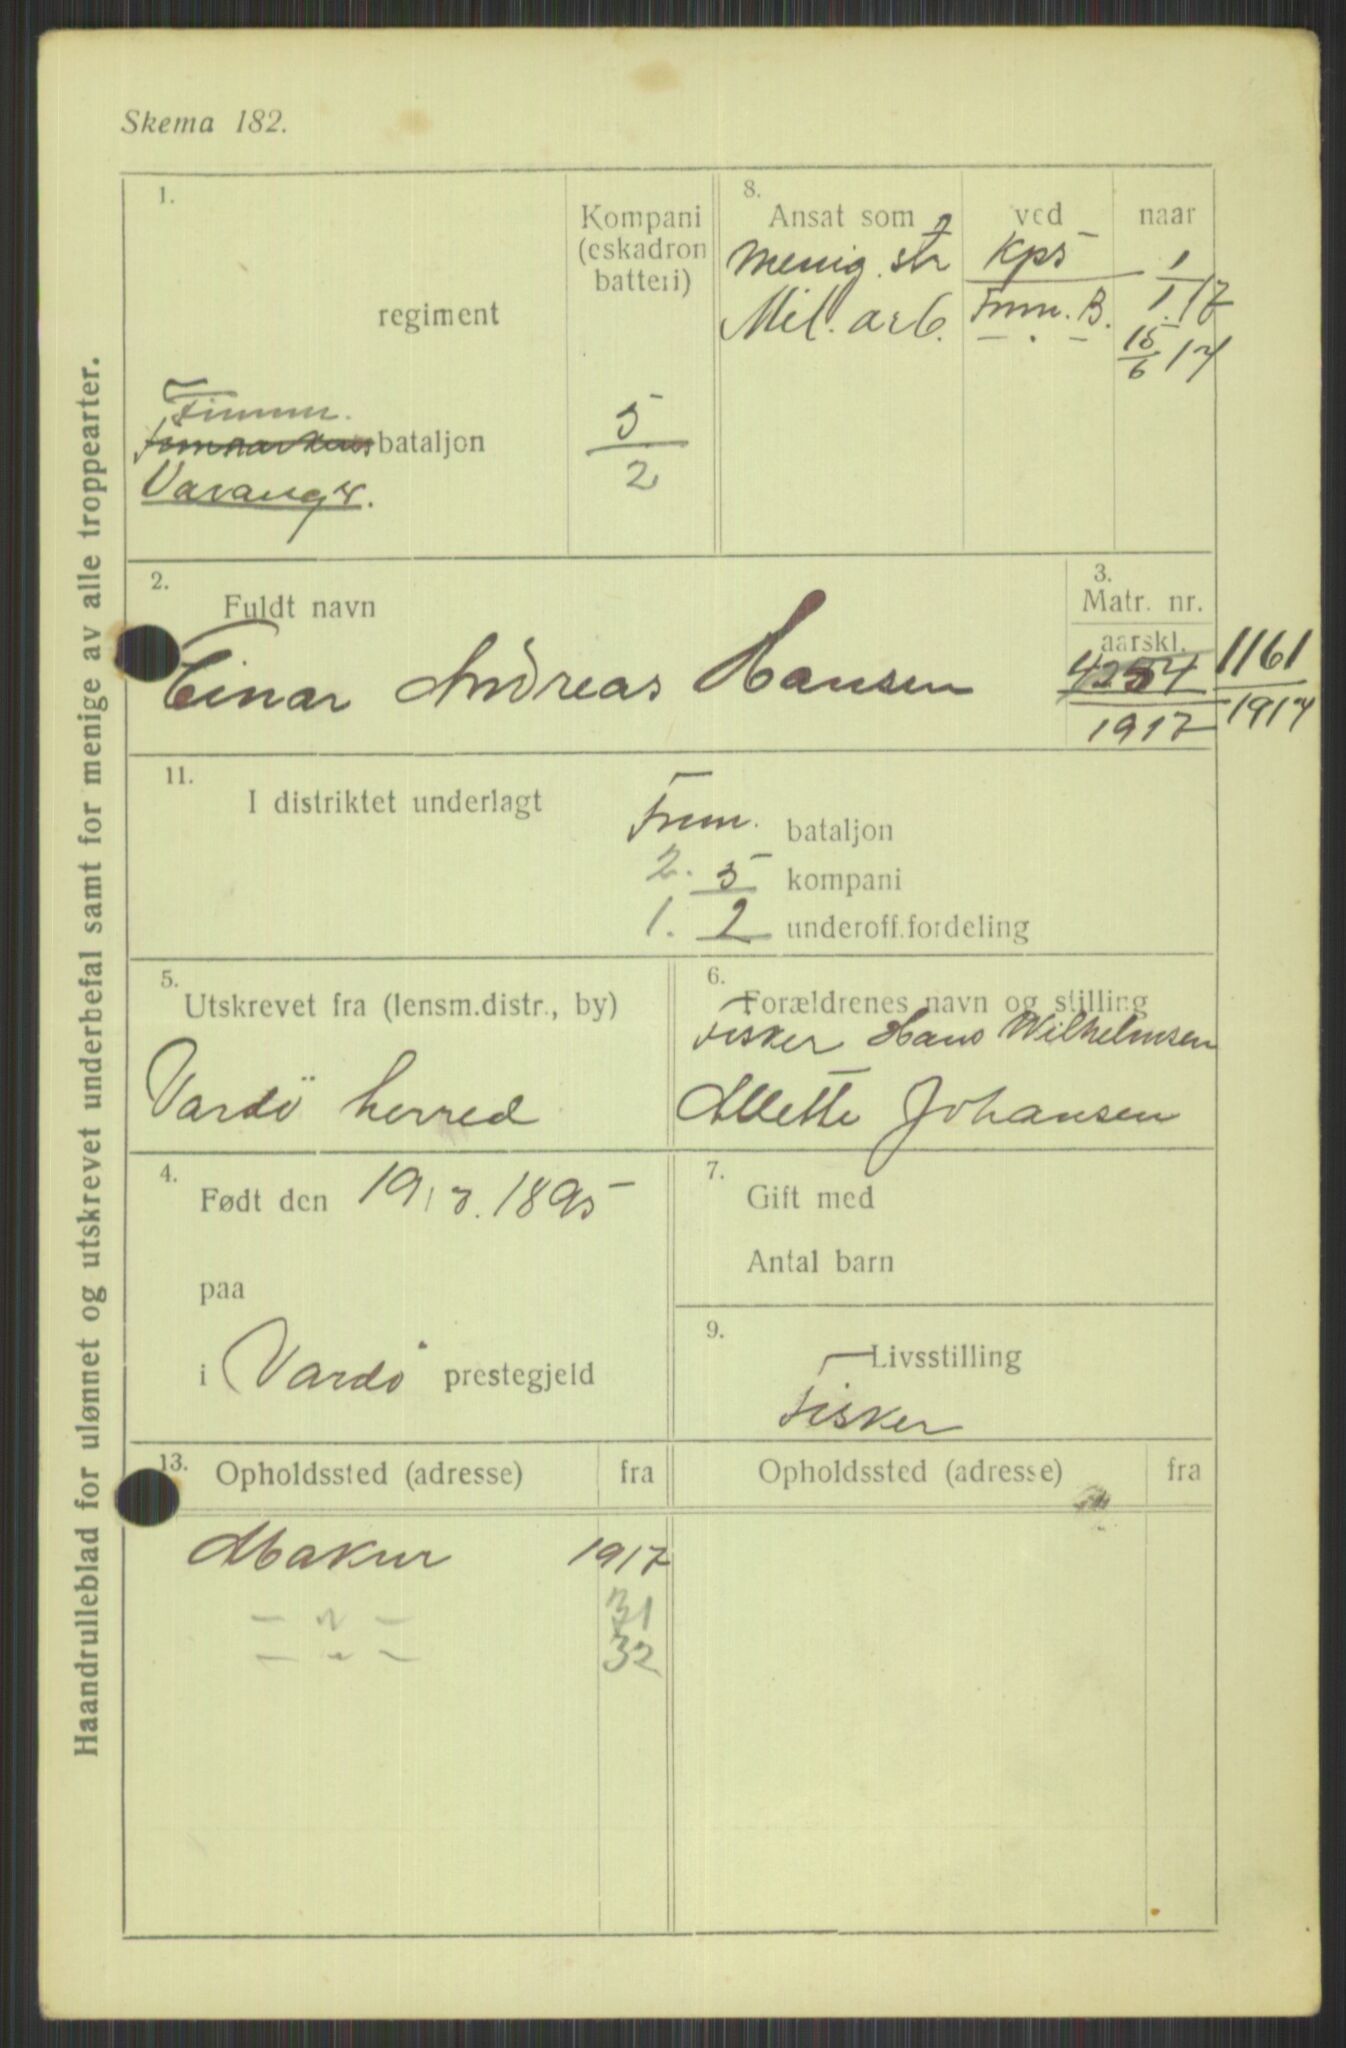 Skema 182.
Haandrulleblad for ulønnet og utskrevet underbefal samt for menige av alle troppearter.
1.
regiment
Finnm.
Finnmarkens bataljon
Varanger.
Kompani
(eskadron
batteri)
5
2
8.
Ansat som ved naar
Menig. str Kps 1/1.17
Mil. arb. Fnm. B. 15/6 17
2.
Fuldt navn
Einar Andreas Hansen
3.
Matr. nr.
aarskl.
4254 1161
1917 1917
11.
I distriktet underlagt
Fnm. bataljon
2. 5 kompani
1. 2 underoff.fordeling
5.
Utskrevet fra (lensm.distr., by)
Vardö herred
6.
Forældrenes navn og stilling
Fisker Hans Wilhelmsen
Mette Johansen
4.
Født den 19/7. 1895
paa
i Vardö prestegjeld
7.
Gift med
Antal barn
9.
Livsstilling
Fisker
13.
Opholdssted (adresse) fra Opholdssted (adresse) fra
Makur 1917
— " — 31
— " — 32